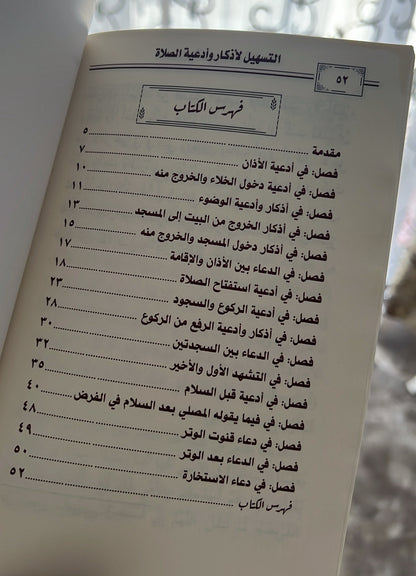 التسهيل لأذكار وأدعية الصلاة ٥٢
فهرس الكتاب
مقدمة ٥
فصل: في أدعية الأذان ٧
فصل: في أدعية دخول الخلاء والخروج منه ١٠
فصل: في أذكار وأدعية الوضوء ١١
فصل: في أذكار الخروج من البيت إلى المسجد ١٣
فصل: في أذكار دخول المسجد والخروج منه ١٥
فصل: في الدعاء بين الأذان والإقامة ١٧
فصل: في أدعية استفتاح الصلاة ١٨
فصل: في أدعية الركوع والسجود ٢٣
فصل: في أذكار وأدعية الرفع من الركوع ٢٨
فصل: في الدعاء بين السجدتين ٣٠
فصل: في التشهد الأول والأخير ٣٢
فصل: في أدعية قبل السلام ٣٥
فصل: في فيما يقوله المصلي بعد السلام في الفرض ٤٠
فصل: في دعاء قنوت الوتر ٤٨
فصل: في الدعاء بعد الوتر ٤٩
فصل: في دعاء الاستخارة ٥٠
فهرس الكتاب ٥٢